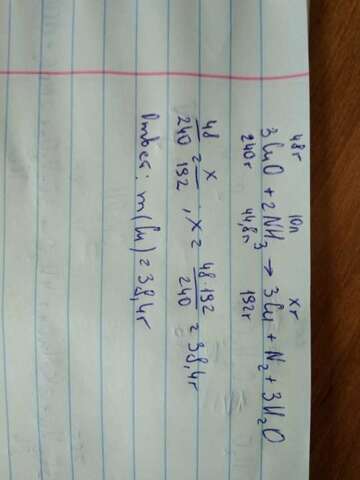 48г 10л xг
3CuO + 2NH₃ → 3Cu + N₂ + 3H₂O
240г 44,8л 192г
48/240 = x/192, x = 48·192/240 = 38,4г
Ответ: m(Cu) = 38,4г